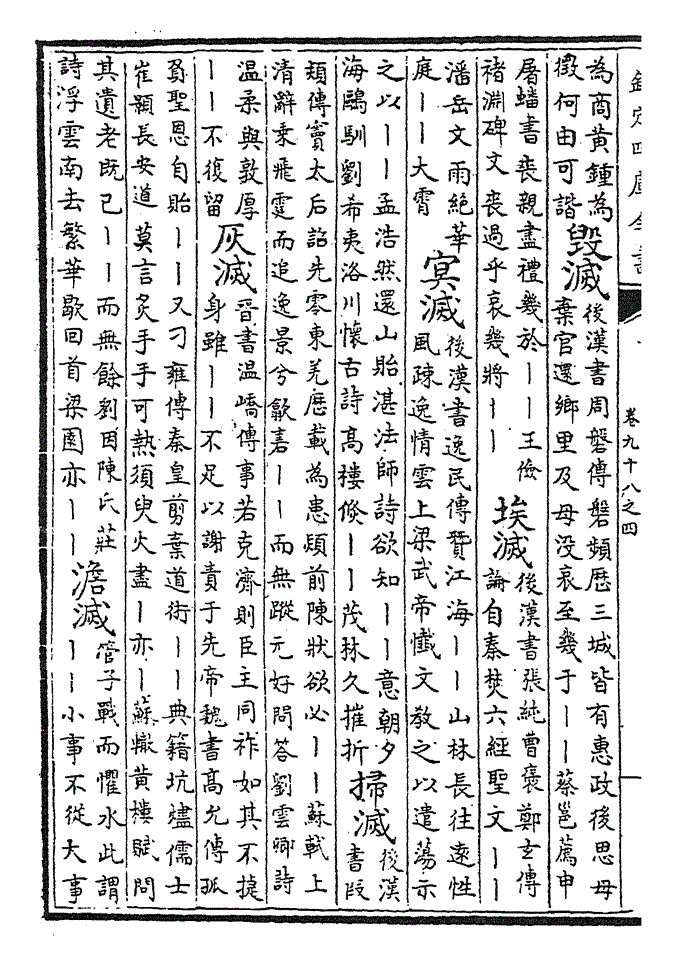 欽定四庫全書
卷九十八之四
為商黃鍾為
徵何由可諧
毀滅
後漢書周磐傳磐頻歴三城皆有惠政後思母
棄官還鄉里及母没哀至幾于丨丨蔡邕薦申
屠蟠書喪親盡禮幾於丨丨王儉
褚淵碑文喪過乎哀幾將丨丨
埃滅
後漢書張純曹褒鄭玄傳
論自秦焚六經聖文丨丨
潘岳文雨絶華
庭丨丨大霄
冥滅
後漢書逸民傳贊江海丨丨山林長往逺性
風疎逸情雲上梁武帝懺文教之以遣蕩示
之以丨丨孟浩然還山貽湛法師詩欲知丨丨意朝夕
海鷗馴劉希夷洛川懷古詩髙樓倐丨丨茂林久摧折
掃滅
後漢
書段
熲傳竇太后詔先零東羌歴載為患熲前陳狀欲必丨丨蘇軾上
清辭乗飛霆而追逸景兮歙砉丨丨而無蹤元好問答劉雲卿詩
温柔與敦厚
丨丨不復留
灰滅
晉書温嶠傳事若克濟則臣主同祚如其不捷
身雖丨丨不足以謝責于先帝魏書髙允傳孤
負聖恩自貽丨丨又刁雍傳秦皇剪棄道術丨丨典籍坑燼儒士
崔顥長安道莫言炙手手可熱須臾火盡丨亦丨蘇轍黄樓賦問
其遺老既已丨丨而無餘劉因陳氏莊
詩浮雲南去繁華歇回首梁園亦丨丨
澹滅
管子戰而懼水此謂
丨丨小事不從大事